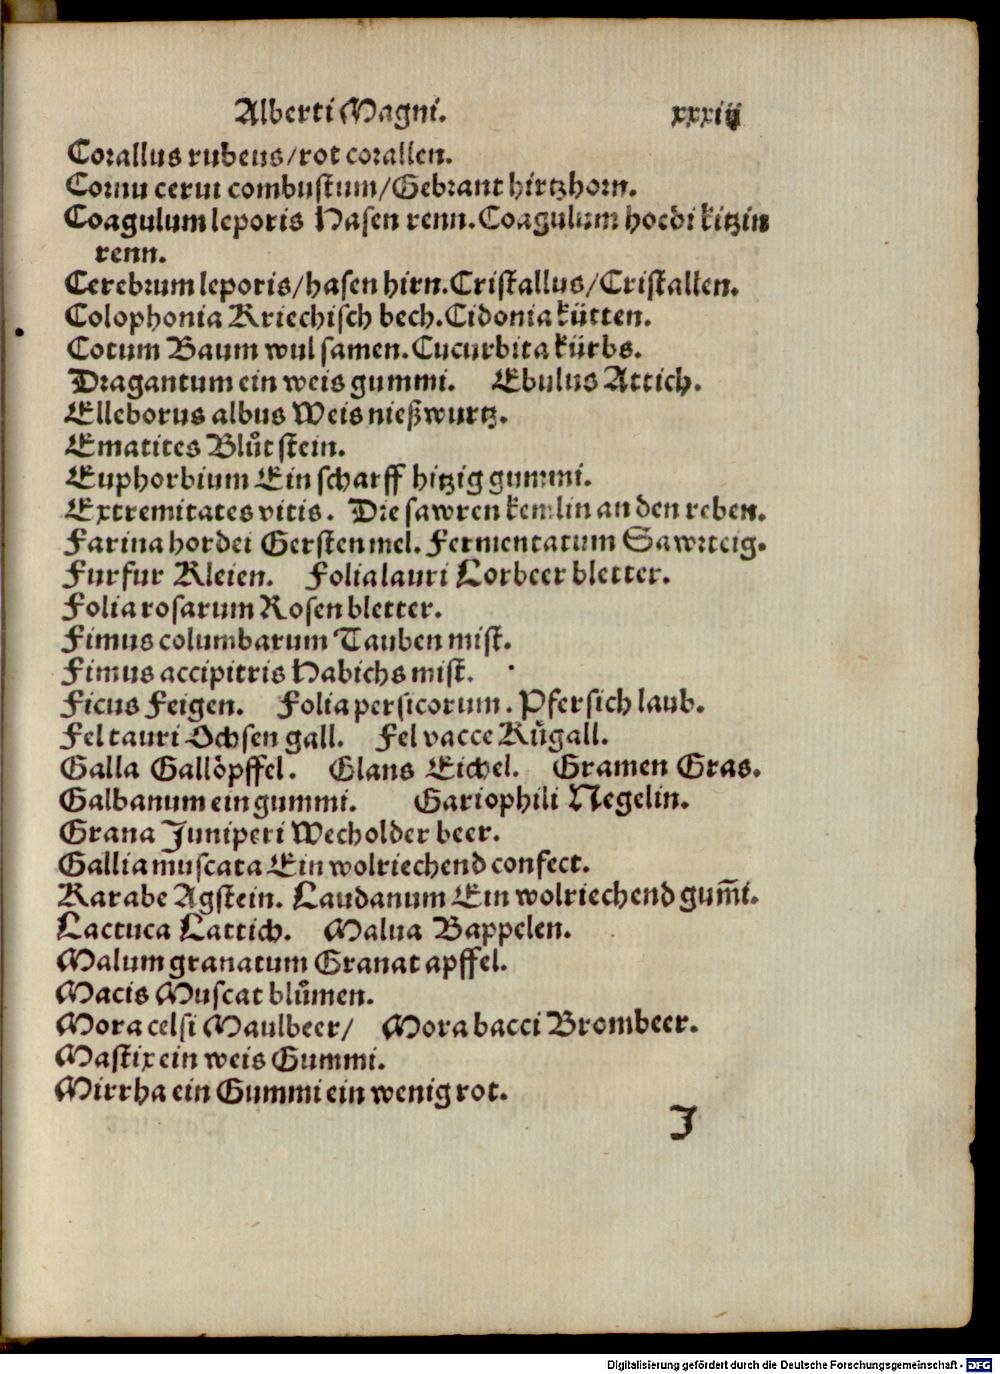 Alberti Magni. xxxiij
Corallus rubeus/rot corallen.
Cornu cerui combustum/Gebrant hirtzhorn.
Coagulum leporis Hasen renn. Coagulum hoedi kitzin
renn.
Cerebrum leporis/hasen hirn. Cristallus/Cristallen.
Colophonia Kriechisch bech. Cidonia kütten.
Cotum Baum wul samen. Cucurbita kürbs.
Dragantum ein weis gummi. Ebulus Attich.
Elleborus albus Weis nießwurtz.
Ematites Blůt stein.
Euphorbium Ein scharff hitzig gummi.
Extremitates vitis. Die sawren kemlin an den reben.
Farina hordei Gersten mel. Fermentatum Sawrteig.
Furfur Kleien. Folia lauri Lorbeer bletter.
Folia rosarum Rosen bletter.
Fimus columbarum Tauben mist.
Fimus accipitris Habichs mist.
Ficus Feigen. Folia persicorum. Pfersich laub.
Fel tauri Ochsen gall. Fel vacce Kůgall.
Galla Gallöpffel. Glans Eichel. Gramen Gras.
Galbanum ein gummi. Gariophili Negelin.
Grana Juniperi Wecholder beer.
Gallia muscata Ein wolriechend confect.
Karabe Agstein. Laudanum Ein wolriechend gum̃i.
Lactuca Lattich. Malua Bappelen.
Malum granatum Granat apffel.
Macis Muscat blůmen.
Mora celsi Maulbeer/ Mora bacci Brombeer.
Mastix ein weis Gummi.
Mirrha ein Gummi ein wenig rot.
J
Digitalisierung gefördert durch die Deutsche Forschungsgemeinschaft - DFG